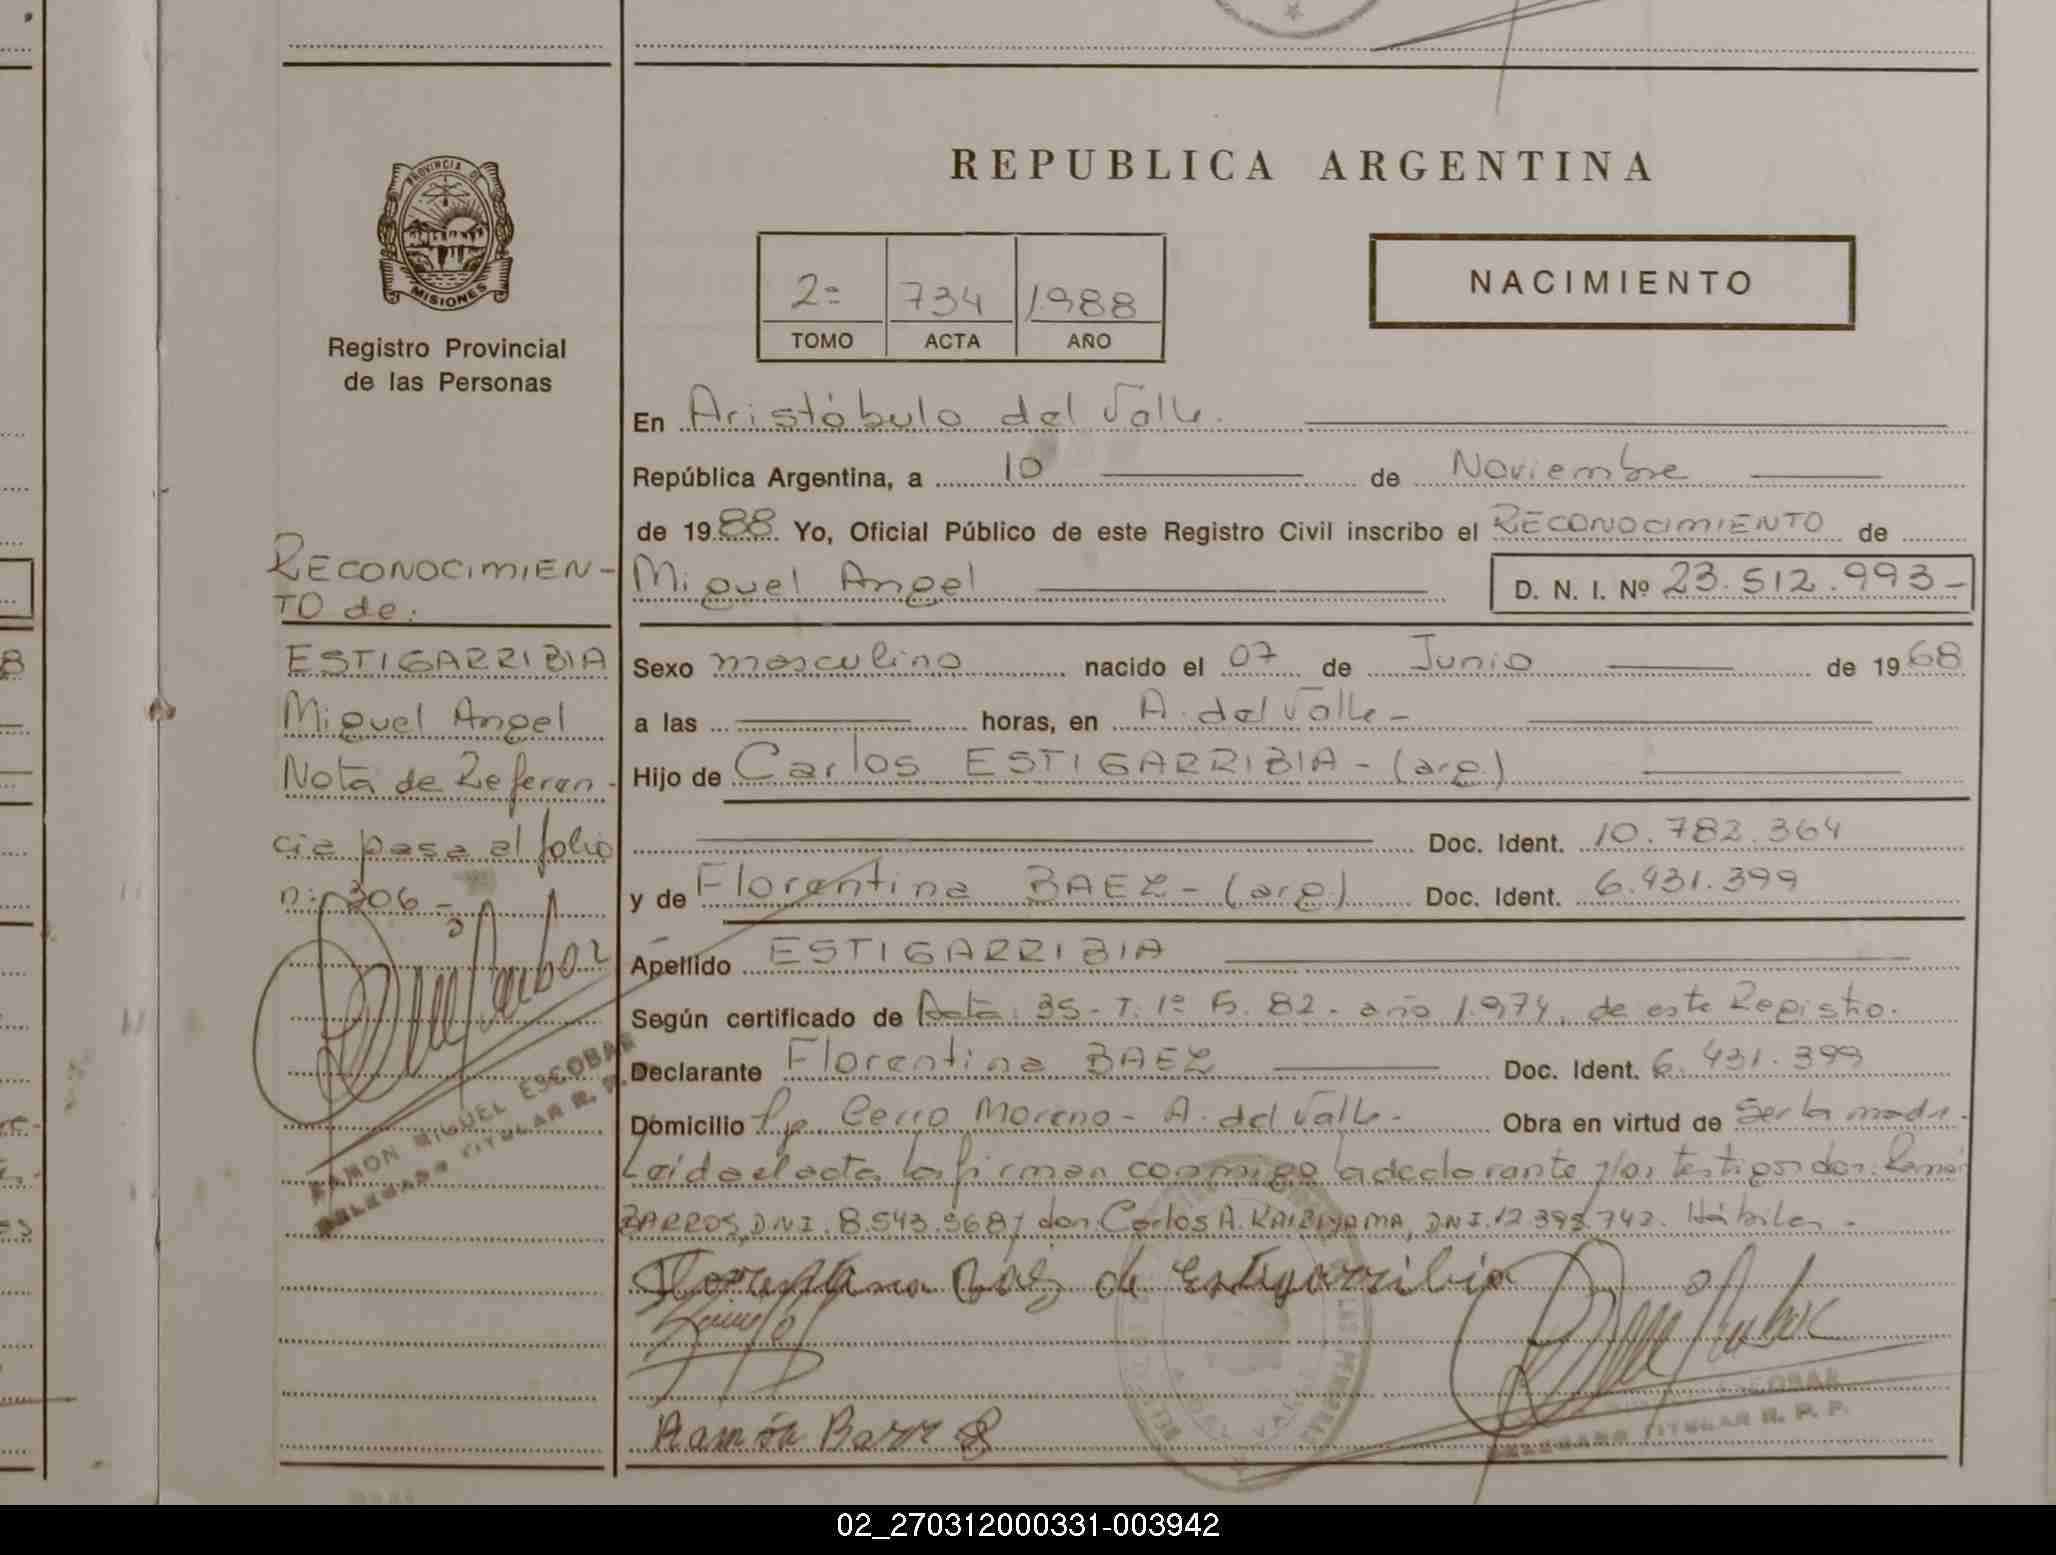 PROVINCIA DE
MISIONES
Registro Provincial
de las Personas
REPUBLICA ARGENTINA
NACIMIENTO
2º 734 1.988
TOMO ACTA AÑO
En Aristóbulo del Valle.
República Argentina, a 10 de Noviembre
de 1988 Yo, Oficial Público de este Registro Civil inscribo el RECONOCIMIENTO de
Miguel Angel D. N. I. Nº 23.512.993-
Sexo masculino nacido el 07 de Junio de 1968
a las horas, en A. del Valle-
Hijo de Carlos ESTIGARRIBIA - (arg.)
Doc. Ident. 10.782.364
y de Florentina BAEZ - (arg.) Doc. Ident. 6.431.399
Apellido ESTIGARRIBIA
Según certificado de Acta 35 - T. 1º F. 82 - año 1.974, de este Registro.
Declarante Florentina BAEZ Doc. Ident. 6.431.399
Domicilio Cerro Moreno - A. del Valle - Obra en virtud de Ser la madre.
Leida el acta la firman conmigo la declarante y los testigos don: Ramón
BARROS, D.N.I. 8.543.968 y don: Carlos A. KAIBIYAMA, D.N.I. 12.398.742. Hábiles -
Florentina Baez de Estigarribia
Ramón Barros
RECONOCIMIEN-
TO de:
ESTIGARRIBIA
Miguel Angel
Nota de Referen-
cia pasa al folio
nº 306 -
RAMON MIGUEL ESCOBAR
DELEGADO TITULAR R. P. P.
ESCOBAR
DELEGADO TITULAR R. P. P.
02_270312000331-003942